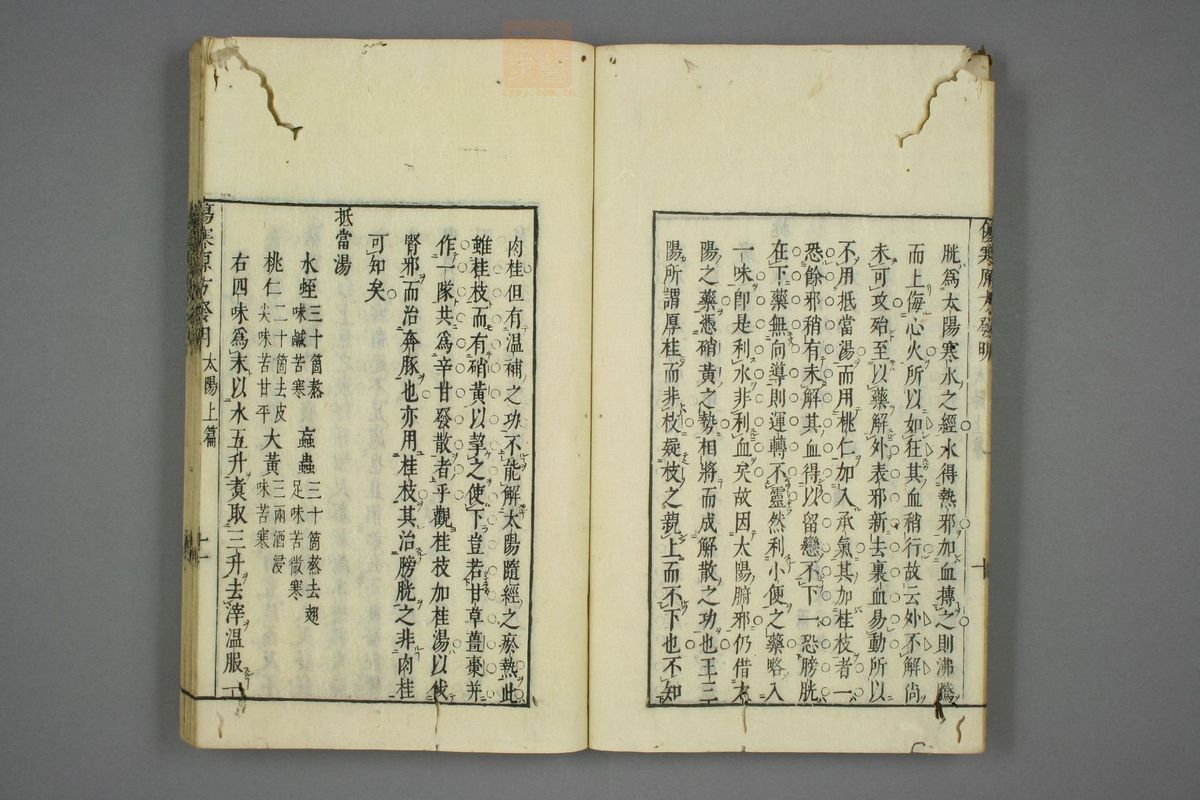 傷寒原方發明
胱爲太陽寒水之經水得熱邪加血摶之則沸騰
而上侮心火所以如在其血稍行故云外不解尙
未可攻殆至以藥解外表邪新去裏血易動所以
不用抵當湯而用桃仁加入承氣其加桂枝者一
恐餘邪稍有未解其血得以留戀不下一恐膀胱
在下藥無向導則運轉不靈然利小便之藥略入
一味卽是利水非利血矣故因太陽腑邪仍借太
陽之藥憑硝黃之勢相將而成解散之功也王三
陽所謂厚桂而非枝疑枝之親上而不下也不知
肉桂但有温補之功不能解太陽隨經之瘀熱此
雖桂枝而有硝黃以挐之使下豈若甘草薑棗并
作一隊共爲辛甘發散者乎觀桂枝加桂湯以伐
腎邪而治奔豚也亦用桂枝其治膀胱之非肉桂
可知矣
抵當湯
水蛭三十箇熬味鹹苦寒 蝱蟲三十箇熬去翅足味苦微寒
桃仁二十箇去皮尖味苦甘平 大黃三兩酒浸味苦寒
右四味爲末以水五升煑取三升去滓温服一
傷寒原方發明 太陽上篇